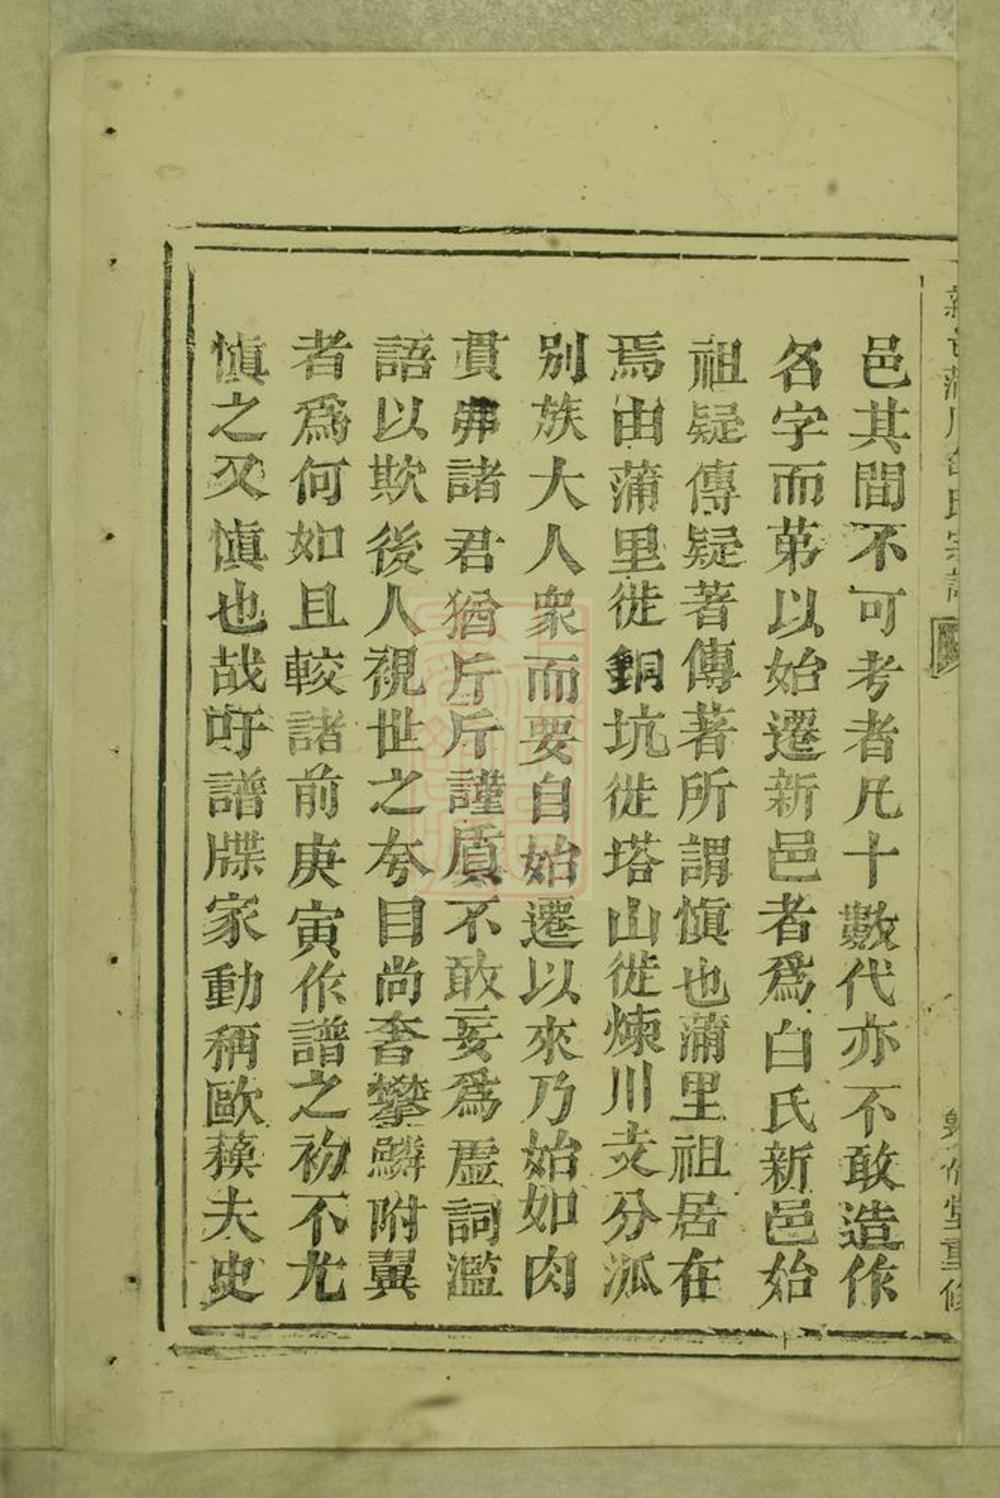 邑其間不可考者凡十數代亦不敢造作
名字而苐以始遷新邑者爲白氏新邑始
祖疑傳疑著傳著所謂愼也蒲里祖居在
焉由蒲里徙銅坑徙塔山徙煉川支分派
別族大人衆而要自始遷以來乃始如肉
貫弗諸君猶斤斤謹質不敢妄爲虛詞濫
語以欺後人視世之夸目尚奢攀鱗附翼
者爲何如且較諸前庚寅作譜之初不尤
愼之又愼也哉吁譜牒家動稱歐蘓夫史